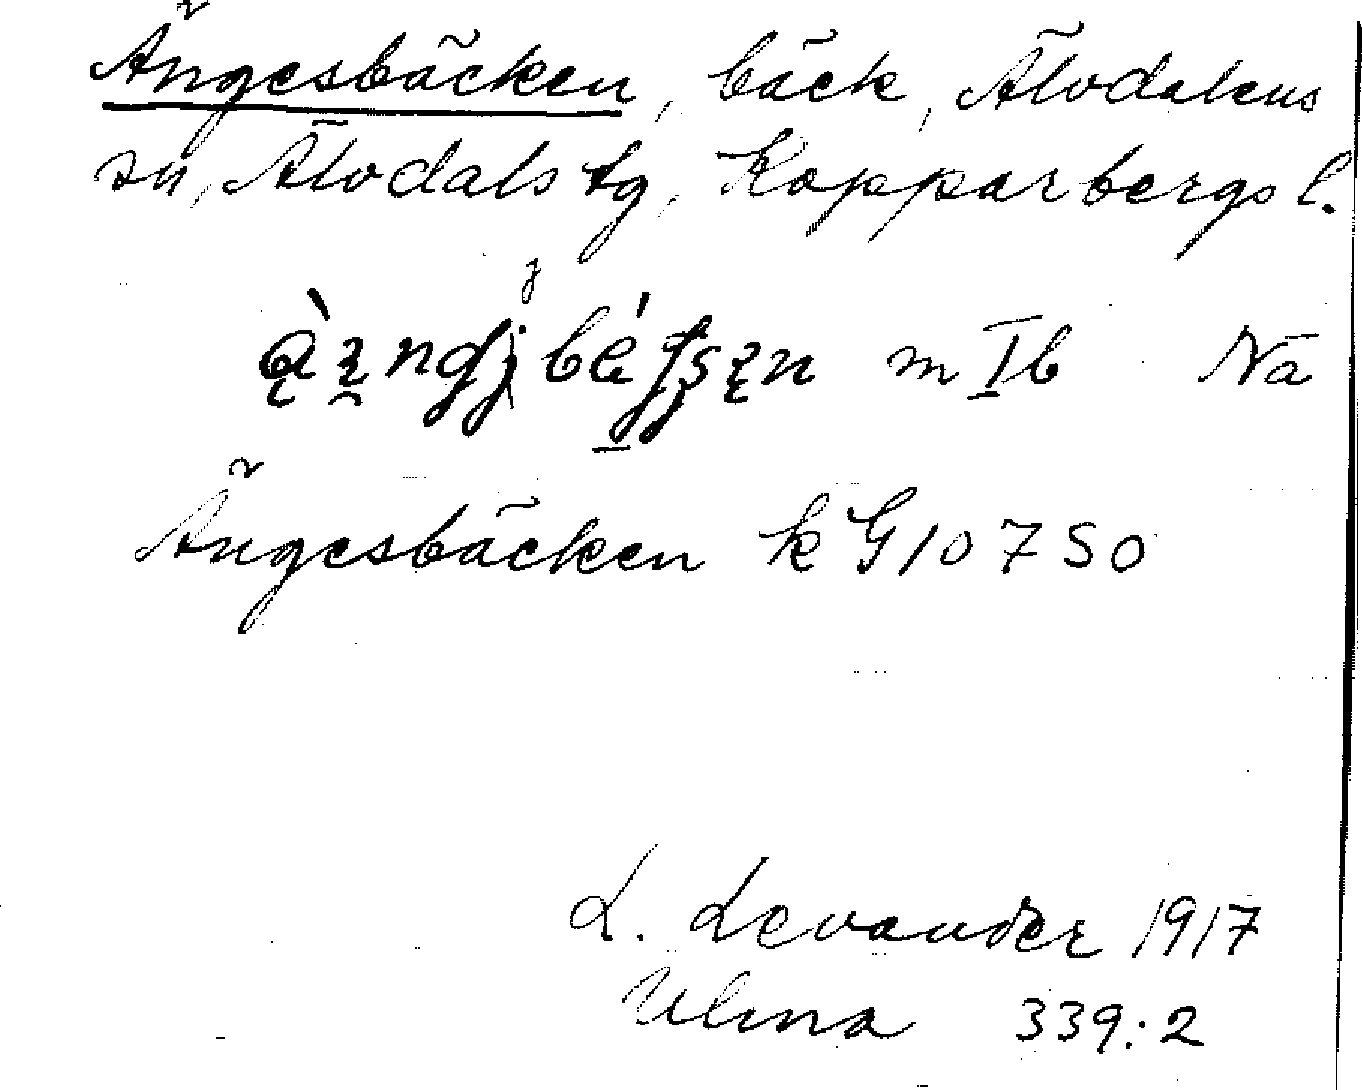 Ängesbäcken, bäck, Älvdalens
sn, Älvdals tg, Kopparbergs l.
m Ib Nä
Ängesbäcken k G10750
L. Levander 1917
Ulma 339:2